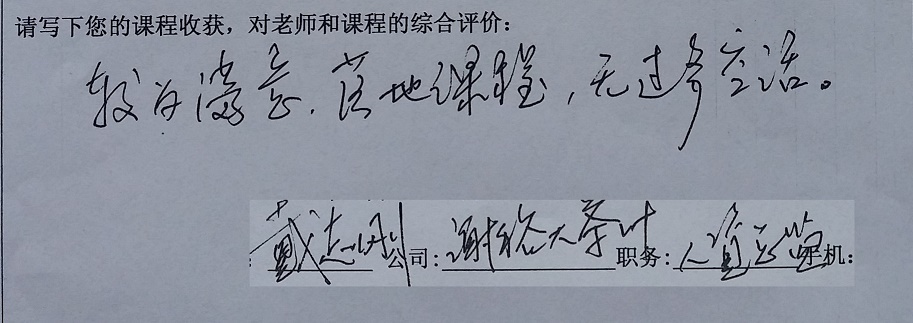 请写下您的课程收获，对老师和课程的综合评价：
较为满意，落地课程，无过多空话。
戴志刚 公司：谢裕大茶叶 职务：人资总监 手机：